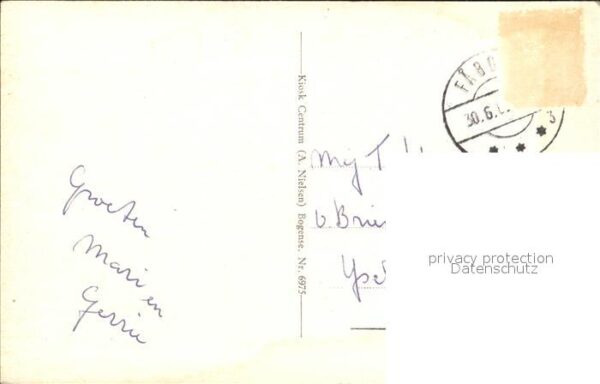 Groeten
Mari en
Gerrie
Kiosk Centrum (A. Nielsen) Bogense. Nr. 6975
30.6.
3
Mej
v. Brie
privacy protection
Datenschutz